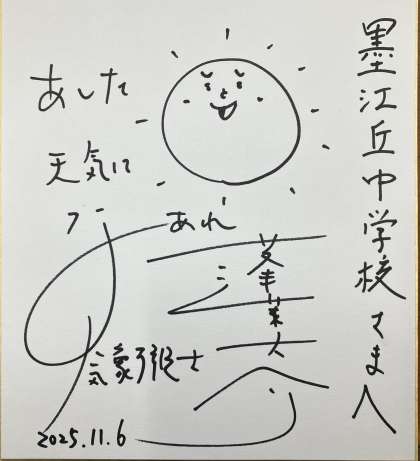 墨江丘中学校さま
あした
天気に
な あれ
気象予報士
蓬莱大介
2025.11.6